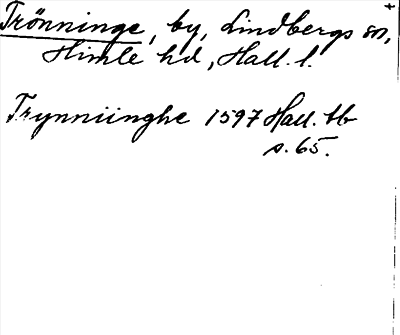 Trönninge, by, Lindbergs sn,
Himle hd, Hall. l.
Trynniinghe 1597 Hall. tb
s. 65.